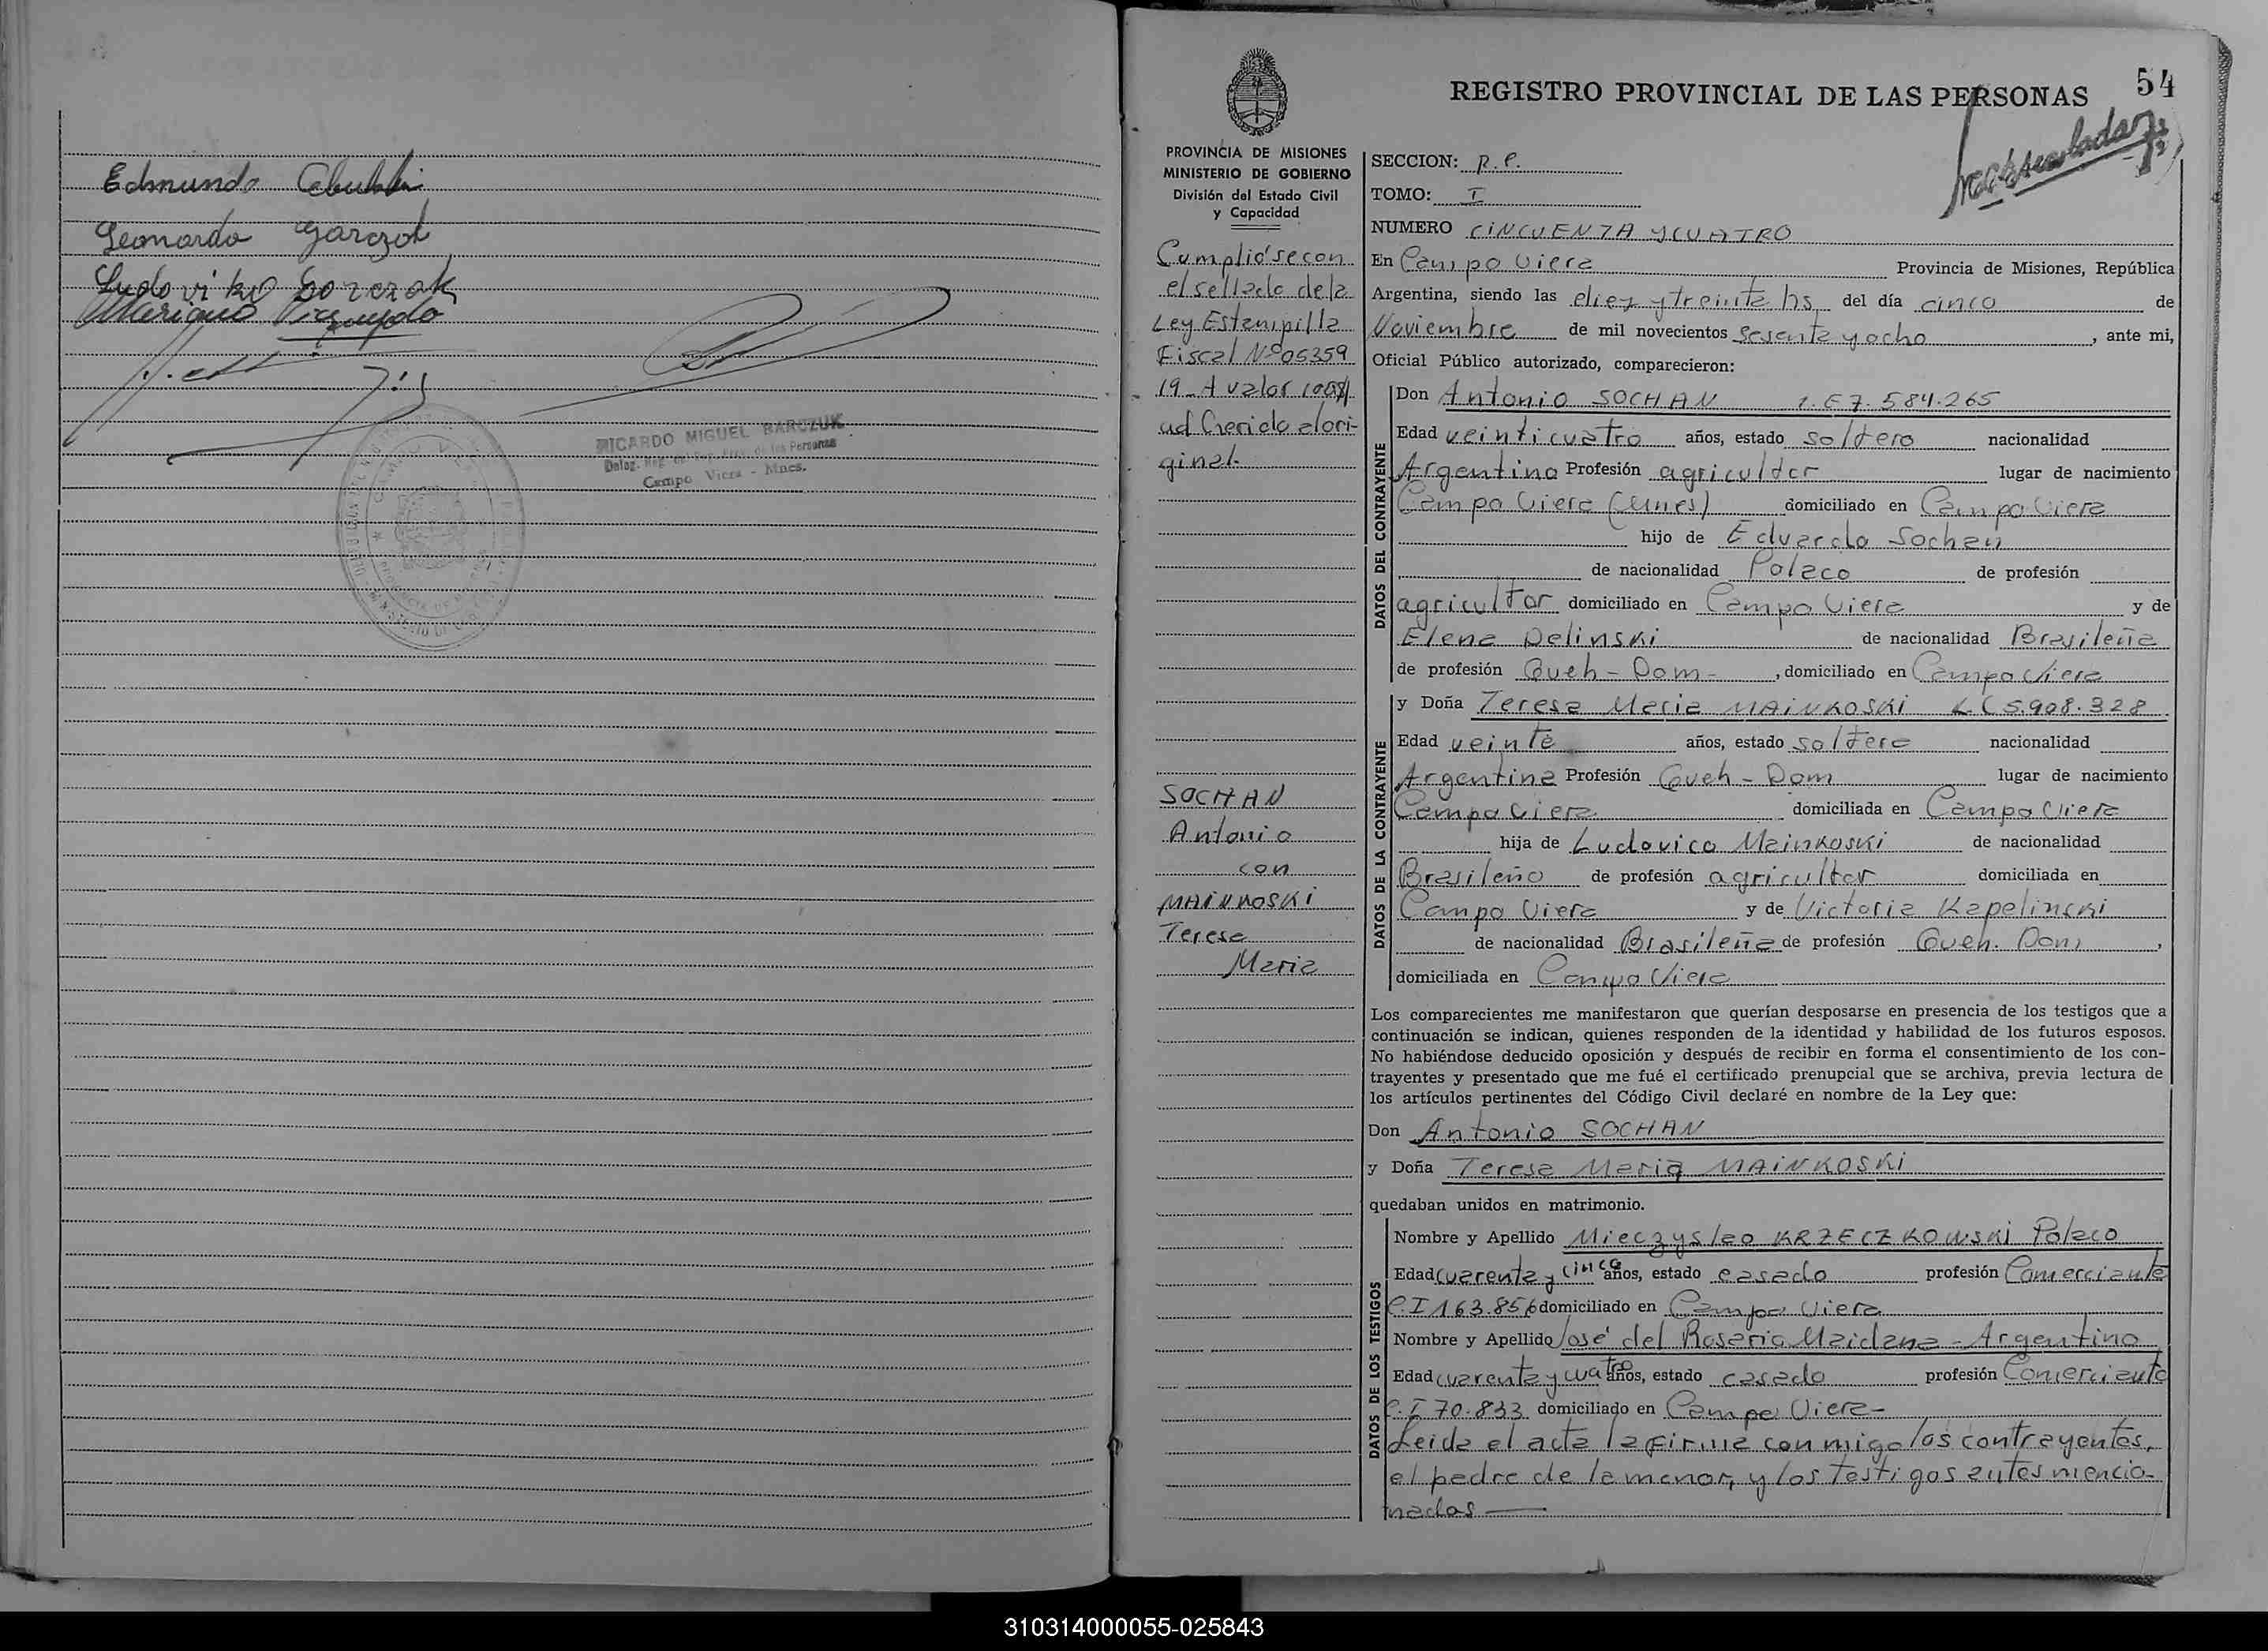 Edmundo
Leonardo Garczol
Ludoviko Gorczak
Mariano
RICARDO MIGUEL BARCZUK
Deleg. Reg. del Reg. Prov. de las Personas
Campo Viera - Mnes.
54
REGISTRO PROVINCIAL DE LAS PERSONAS
PROVINCIA DE MISIONES
MINISTERIO DE GOBIERNO
División del Estado Civil
y Capacidad
Cumplió se con
el sellado de la
Ley Estampilla
Fiscal Nº 05359
19-A valor
adherido al ori-
ginal.
SOCHAN
Antonio
con
MAINKOSKI
Teresa
Maria
SECCION: R.P.
TOMO: I
NUMERO CINCUENTA Y CUATRO
En Campo Viera Provincia de Misiones, República
Argentina, siendo las diez y treinta hs del día cinco de
Noviembre de mil novecientos sesenta y ocho, ante mi,
Oficial Público autorizado, comparecieron:
DATOS DEL CONTRAYENTE
Don Antonio SOCHAN 7.584.265
Edad veinticuatro años, estado soltero nacionalidad
Argentino Profesión agricultor lugar de nacimiento
Campo Viera (Mnes) domiciliado en Campo Viera
hijo de Eduardo Sochan
de nacionalidad Polaco de profesión
agricultor domiciliado en Campo Viera y de
Elena Delinski de nacionalidad Brasileña
de profesión Queh-Dom-, domiciliado en Campo Viera
DATOS DE LA CONTRAYENTE
y Doña Teresa Maria MAINKOSKI L.C 5.908.328
Edad veinte años, estado soltera nacionalidad
Argentina Profesión Queh-Dom lugar de nacimiento
Campo Viera domiciliada en Campo Viera
hija de Ludovico Mainkoski de nacionalidad
Brasileño de profesión agricultor domiciliada en
Campo Viera y de Victoria Kapelinski
de nacionalidad Brasileña de profesión Queh. Dom,
domiciliada en Campo Viera
Los comparecientes me manifestaron que querían desposarse en presencia de los testigos que a
continuación se indican, quienes responden de la identidad y habilidad de los futuros esposos.
No habiéndose deducido oposición y después de recibir en forma el consentimiento de los con-
trayentes y presentado que me fué el certificado prenupcial que se archiva, previa lectura de
los artículos pertinentes del Código Civil declaré en nombre de la Ley que:
Don Antonio SOCHAN
y Doña Teresa Maria MAINKOSKI
quedaban unidos en matrimonio.
DATOS DE LOS TESTIGOS
Nombre y Apellido Mieczyslao KRZECZKOWSKI Polaco
Edad cuarenta y cinco años, estado casado profesión Comerciante
C.I 163.856 domiciliado en Campo Viera
Nombre y Apellido José del Rosario Maidana - Argentino
Edad cuarenta y cuatro años, estado casado profesión Comerciante
C.I 70.833 domiciliado en Campo Viera-
Leida el acta la firma conmigo los contrayentes,
el padre de la menor, y los testigos antes mencio-
nados —
310314000055-025843